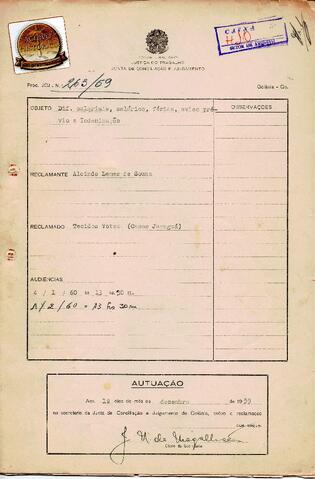 JUSTIÇA DO TRABALHO
JUNTA DE CONCILIAÇÃO E JULGAMENTO
Proc. JCJ - N.º 263/59
Goiânia - Go.
OBJETO
Dif. salariais, salários, férias, aviso pré-
vio e Indenização
OBSERVAÇÕES
RECLAMANTE
Alcindo Lemes de Souza
RECLAMADO
Tecidos (Casas Jaraguá)
AUDIÊNCIAS
4 / 1 / 60 às 13
1 / 2 / 60 = 13 hs 30 m
AUTUAÇÃO
Aos 18 dias do mês de dezembro de 1959
na secretaria da Junta de Conciliação e Julgamento de Goiânia, autúo a reclamação
J. N. de Magalhães
Chefe da Secretaria